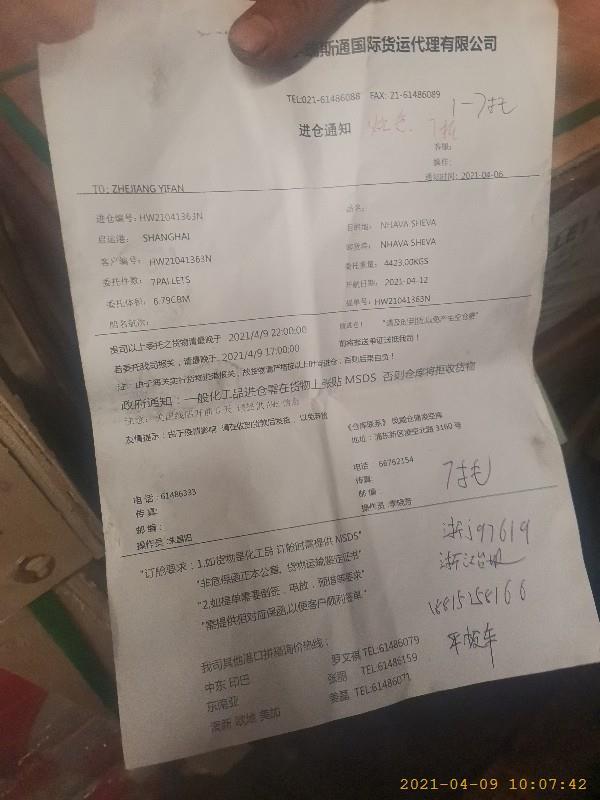 斯通国际货运代理有限公司
TEL:021-61486088 FAX: 21-61486089
1-7托
进仓通知
客服:
操作:
通知时间: 2021-04-06
TO: ZHEJIANG YIFAN
进仓编号: HW21041363N
品名:
启运港: SHANGHAI
目的地: NHAVA SHEVA
客户编号: HW21041363N
NHAVA SHEVA
委托件数: 7PALLETS
委托重量: 4423.00KGS
委托体积: 6.79CBM
开航日期: 2021-04-12
船名航次:
提单号: HW21041363N
贵司以上委托之货物请最晚于 2021/4/9 22:00:00
"请及时到货,以免产生空仓费"
若委托我司报关, 请最晚于 2021/4/9 17:00:00
前将报关单证送抵我司!
否则后果自负!
政府通知: 一般化工品进仓需在货物上张贴 MSDS 否则仓库将拒收货物
友情提示:
《仓库联系》
地址: 浦东新区凌空北路 3160 号
电话: 61486333
电话 66762154
传真:
传真:
邮编:
邮编:
操作员:
操作员: 李晓芳
7托
"订舱要求: 1.如货物是化工品 订舱时需提供 MSDS"
"非危保函正本公章, 货物运输鉴定证书"
"2.如提单需要倒签、电放、预借等要求"
"需提供相对应保函,以便客户顺利签单."
浙J97619
18815258166
平板车
我司其他港口拼箱询价热线:
中东 印巴 罗文祺 TEL:61486079
东南亚 张丽 TEL:61486159
澳新 欧地 美加 姜磊 TEL:61486071
2021-04-09 10:07:42